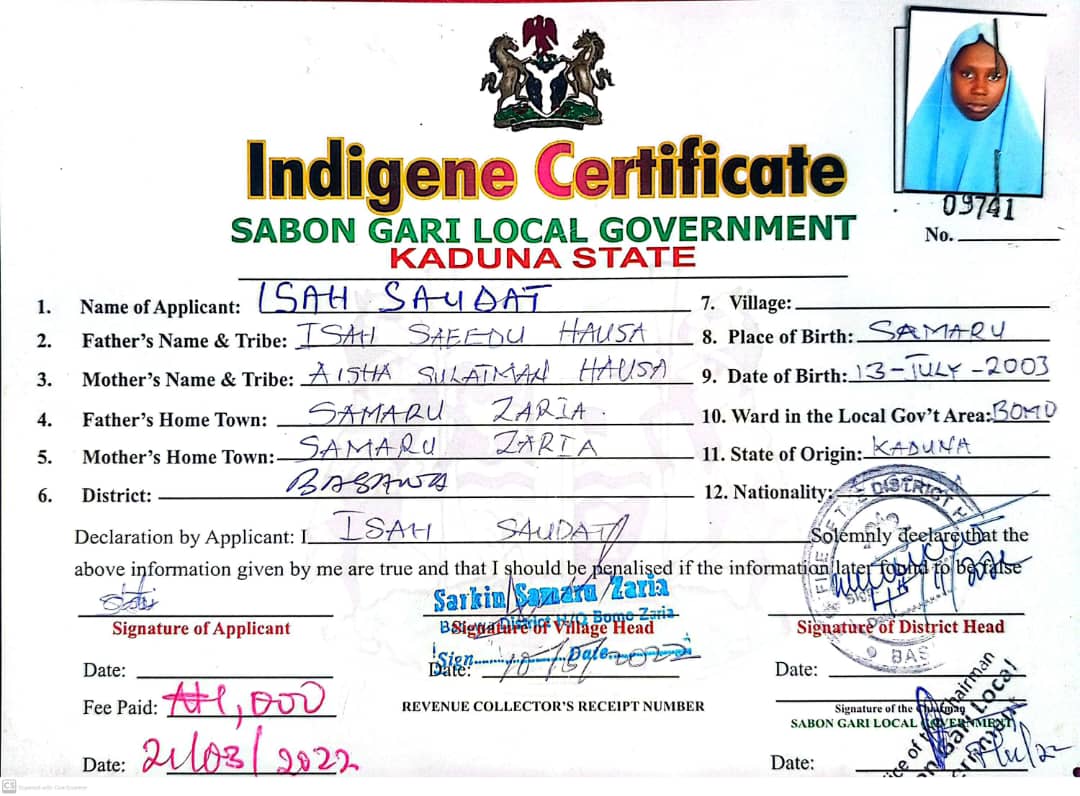 Indigene Certificate
SABON GARI LOCAL GOVERNMENT
KADUNA STATE
09741
No.
1. Name of Applicant: ISAH SAUDAT
2. Father's Name & Tribe: ISAH SAEEDU HAUSA
3. Mother's Name & Tribe: AISHA SULAIMAN HAUSA
4. Father's Home Town: SAMARU ZARIA.
5. Mother's Home Town: SAMARU ZARIA
6. District: BASAWA
7. Village:
8. Place of Birth: SAMARU
9. Date of Birth: 13-JULY-2003
10. Ward in the Local Gov't Area: BOMO
11. State of Origin: KADUNA
12. Nationality:
Declaration by Applicant: I ISAH SAUDAT Solemnly declare that the
above information given by me are true and that I should be penalised if the information later found to be false
Signature of Applicant
Date:
Fee Paid: ₦1,000
Date: 21/03/2022
Sarkin Samaru Zaria
Basawa District H/Q Bomo Zaria
Signature of Village Head
Sign Date 2022
Date:
REVENUE COLLECTOR'S RECEIPT NUMBER
THE DISTRICT
BAS
Signature of District Head
Date:
Signature of the Chairman
SABON GARI LOCAL GOVERNMENT
Chairman
Gari Local
Date:
CS Scanned with CamScanner